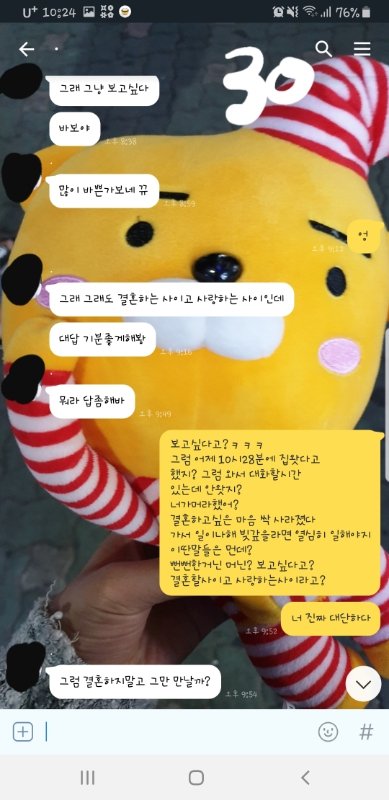 U+ 10:24 76%
30
그래 그냥 보고싶다
바보야
오후 8:38
많이 바쁜가보네 뀨
오후 8:59
엉
오후 9:13
그래 그래도 결혼하는 사이고 사랑하는 사이인데
대답 기분좋게해봐
오후 9:16
뭐라 답좀해바
오후 9:49
보고싶다고?ㅋㅋㅋ
그럼 어제 10시28분에 집왓다고
했지? 그럼 와서 대화할시간
있는데 안왓지?
너가머라했어?
결혼하고싶은 마음 싹 사라졌다
가서 일이나해 빚갚을라면 열심히 일해야지
이딴말들은 먼데?
뻔뻔한거닌 머닌? 보고싶다고?
결혼할사이고 사랑하는사이라고?
너 진짜 대단하다
오후 9:52
그럼 결혼하지말고 그만 만날까?
오후 9:54
#